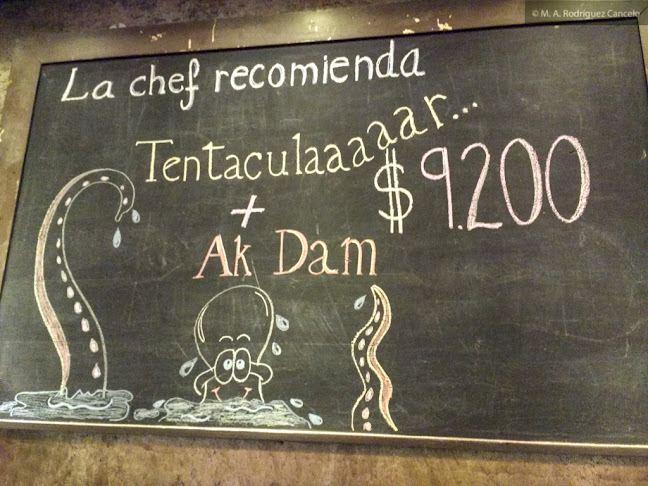 © M. A. Rodríguez Cancelo
La chef recomienda
Tentaculaaaaar...
$9.200
+
Ak Dam